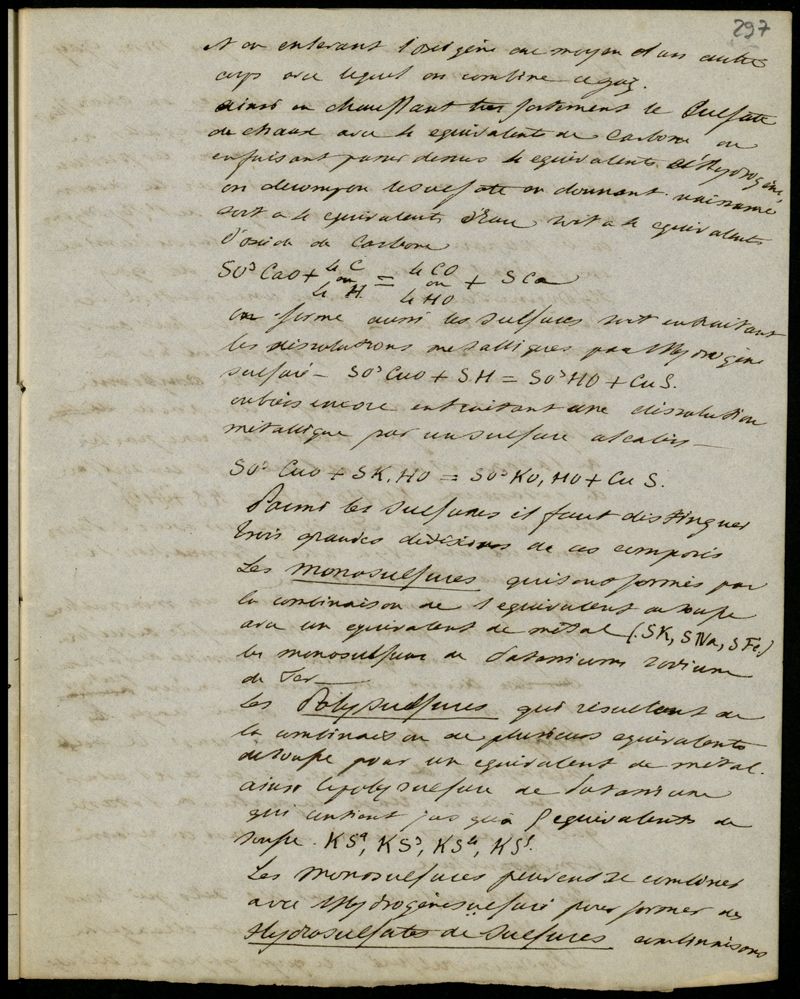 297
et en enlevant l'oxigène au moyen d'un autre
corps avec lequel on combine ce gaz.
ainsi en chauffant fortement le Sulfate
de chaux avec 4 equivalents de Carbone ou
en faisant passer dessus 4 equivalents d'Hydrogène,
on decompose le sulfate en donnant naissance
soit a 4 equivalents d'Eau soit a 4 equivalents
d'oxide de Carbone
SO³CaO + 4C ou 4H = 4CO ou 4HO + SCa
on forme aussi les sulfures soit en traitant
les dissolutions metalliques par l'Hydrogène
sulfuré – SO³CuO + SH = SO³HO + CuS.
ou bien encore en traitant une dissolution
métallique par un sulfure alcalin –
SO³ CuO + SK, HO = SO³KO, HO + CuS.
Parmi les sulfures il faut distinguer
trois grandes divisions de ces composés
Les monosulfures qui sont formés par
la combinaison de 1 equivalent de soufre
avec un equivalent de métal (SK, SNa, SFe.)
les monosulfure de Potassium sodium
de Fer —
Les Polysulfures qui résultent de
la combinaison de plusieurs equivalents
de soufre pour un equivalent de métal.
ainsi le polysulfure de Potassium
qui contient jusqu'a 5 equivalents de
soufre. KS², KS³, KS⁴, KS⁵.
Les Monosulfures peuvent se combiner
avec l'Hydrogène sulfuré pour former des
Hydrosulfates de Sulfures combinaisons